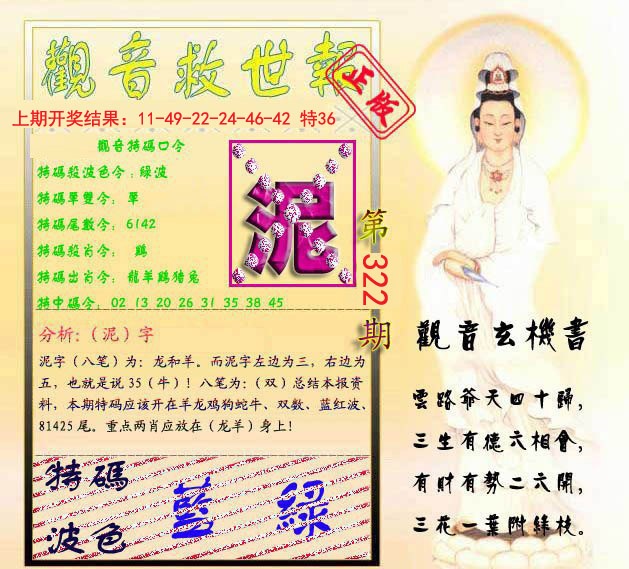 觀音救世報
正版
上期开奖结果：11-49-22-24-46-42 特36
觀音特碼口令
特碼殺波色令：綠波
特碼單雙令：單
特碼尾數令：6142
特碼殺肖令：鷄
特碼出肖令：龍羊鷄猪兔
特中碼令：02 13 20 26 31 35 38 45
泥
第322期
分析：（泥）字
泥字（八笔）为：龙和羊。而泥字左边为三，右边为
五，也就是说 35（牛）！八笔为：（双）总结本报资
料，本期特码应该开在羊龙鸡狗蛇牛、双数、蓝红波、
81425 尾。重点两肖应放在（龙羊）身上！
特碼
波色
藍 綠
觀音玄機書
雲路爺天四十歸，
三生有德六相會，
有財有勢二六開，
三花一葉附綠枝。